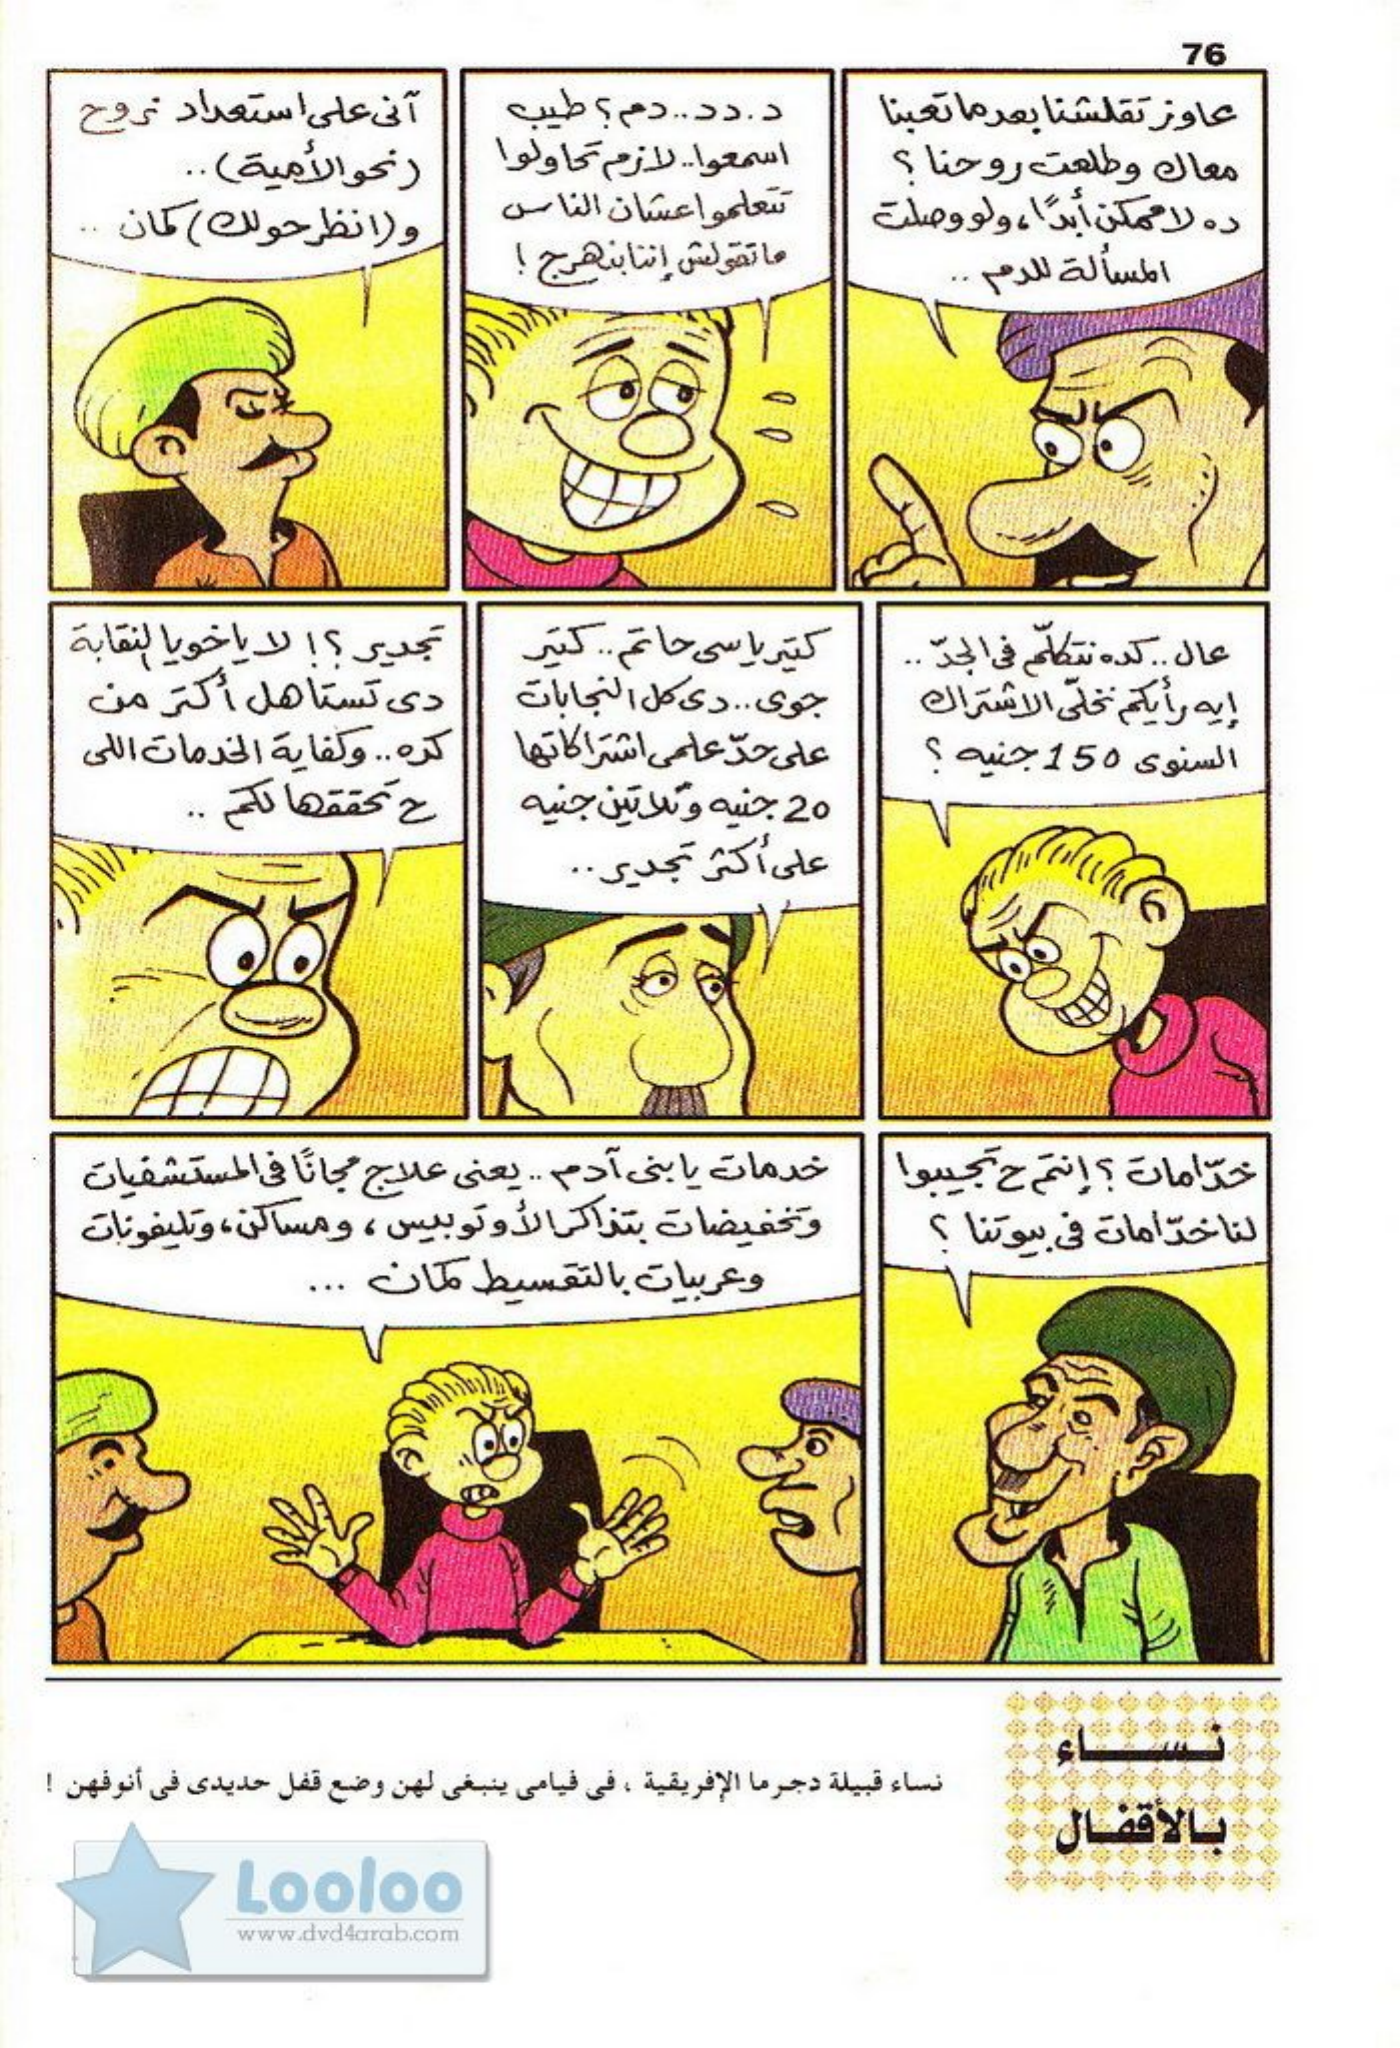 76
عاوز تقلشنا بعد ما تعبنا
معاك وطلعت روحنا ؟
ده لا ممكن أبدًا، ولو وصلت
المسألة للدم ..
د.دد..دم؟ طيب
اسمعوا.. لازم تحاولوا
تتعلموا عشان الناس
ماتقولش إننا بنهرج !
آنى على استعداد نروح
(نحو الأمية) ..
و(انظر حولك) كمان ..
عال.. كده نتكلّم فى الجدّ ..
إيه رأيكم نخلّى الاشتراك
السنوى 150 جنيه ؟
كتير يا سى حاتم .. كتير
جوى.. دى كل النجابات
على حدّ علمى اشتراكاتها
20 جنيه وثلاتين جنيه
على أكثر تجدير ..
تجدير ؟! لا يا خويا النقابة
دى تستاهل أكتر من
كده.. وكفاية الخدمات اللى
ح تحققها لكم ..
خدّامات ؟ إنتم ح تجيبوا
لنا خدّامات فى بيوتنا ؟
خدمات يا بنى آدم .. يعنى علاج مجانًا فى المستشفيات
وتخفيضات بتذاكر الأوتوبيس ، ومساكن، وتليفونات
وعربيات بالتقسيط كمان ...
نســاء
بالأقفال
نساء قبيلة دجرما الإفريقية ، فى فيامى ينبغى لهن وضع قفل حديدى فى أنوفهن !
Looloo
www.dvd4arab.com